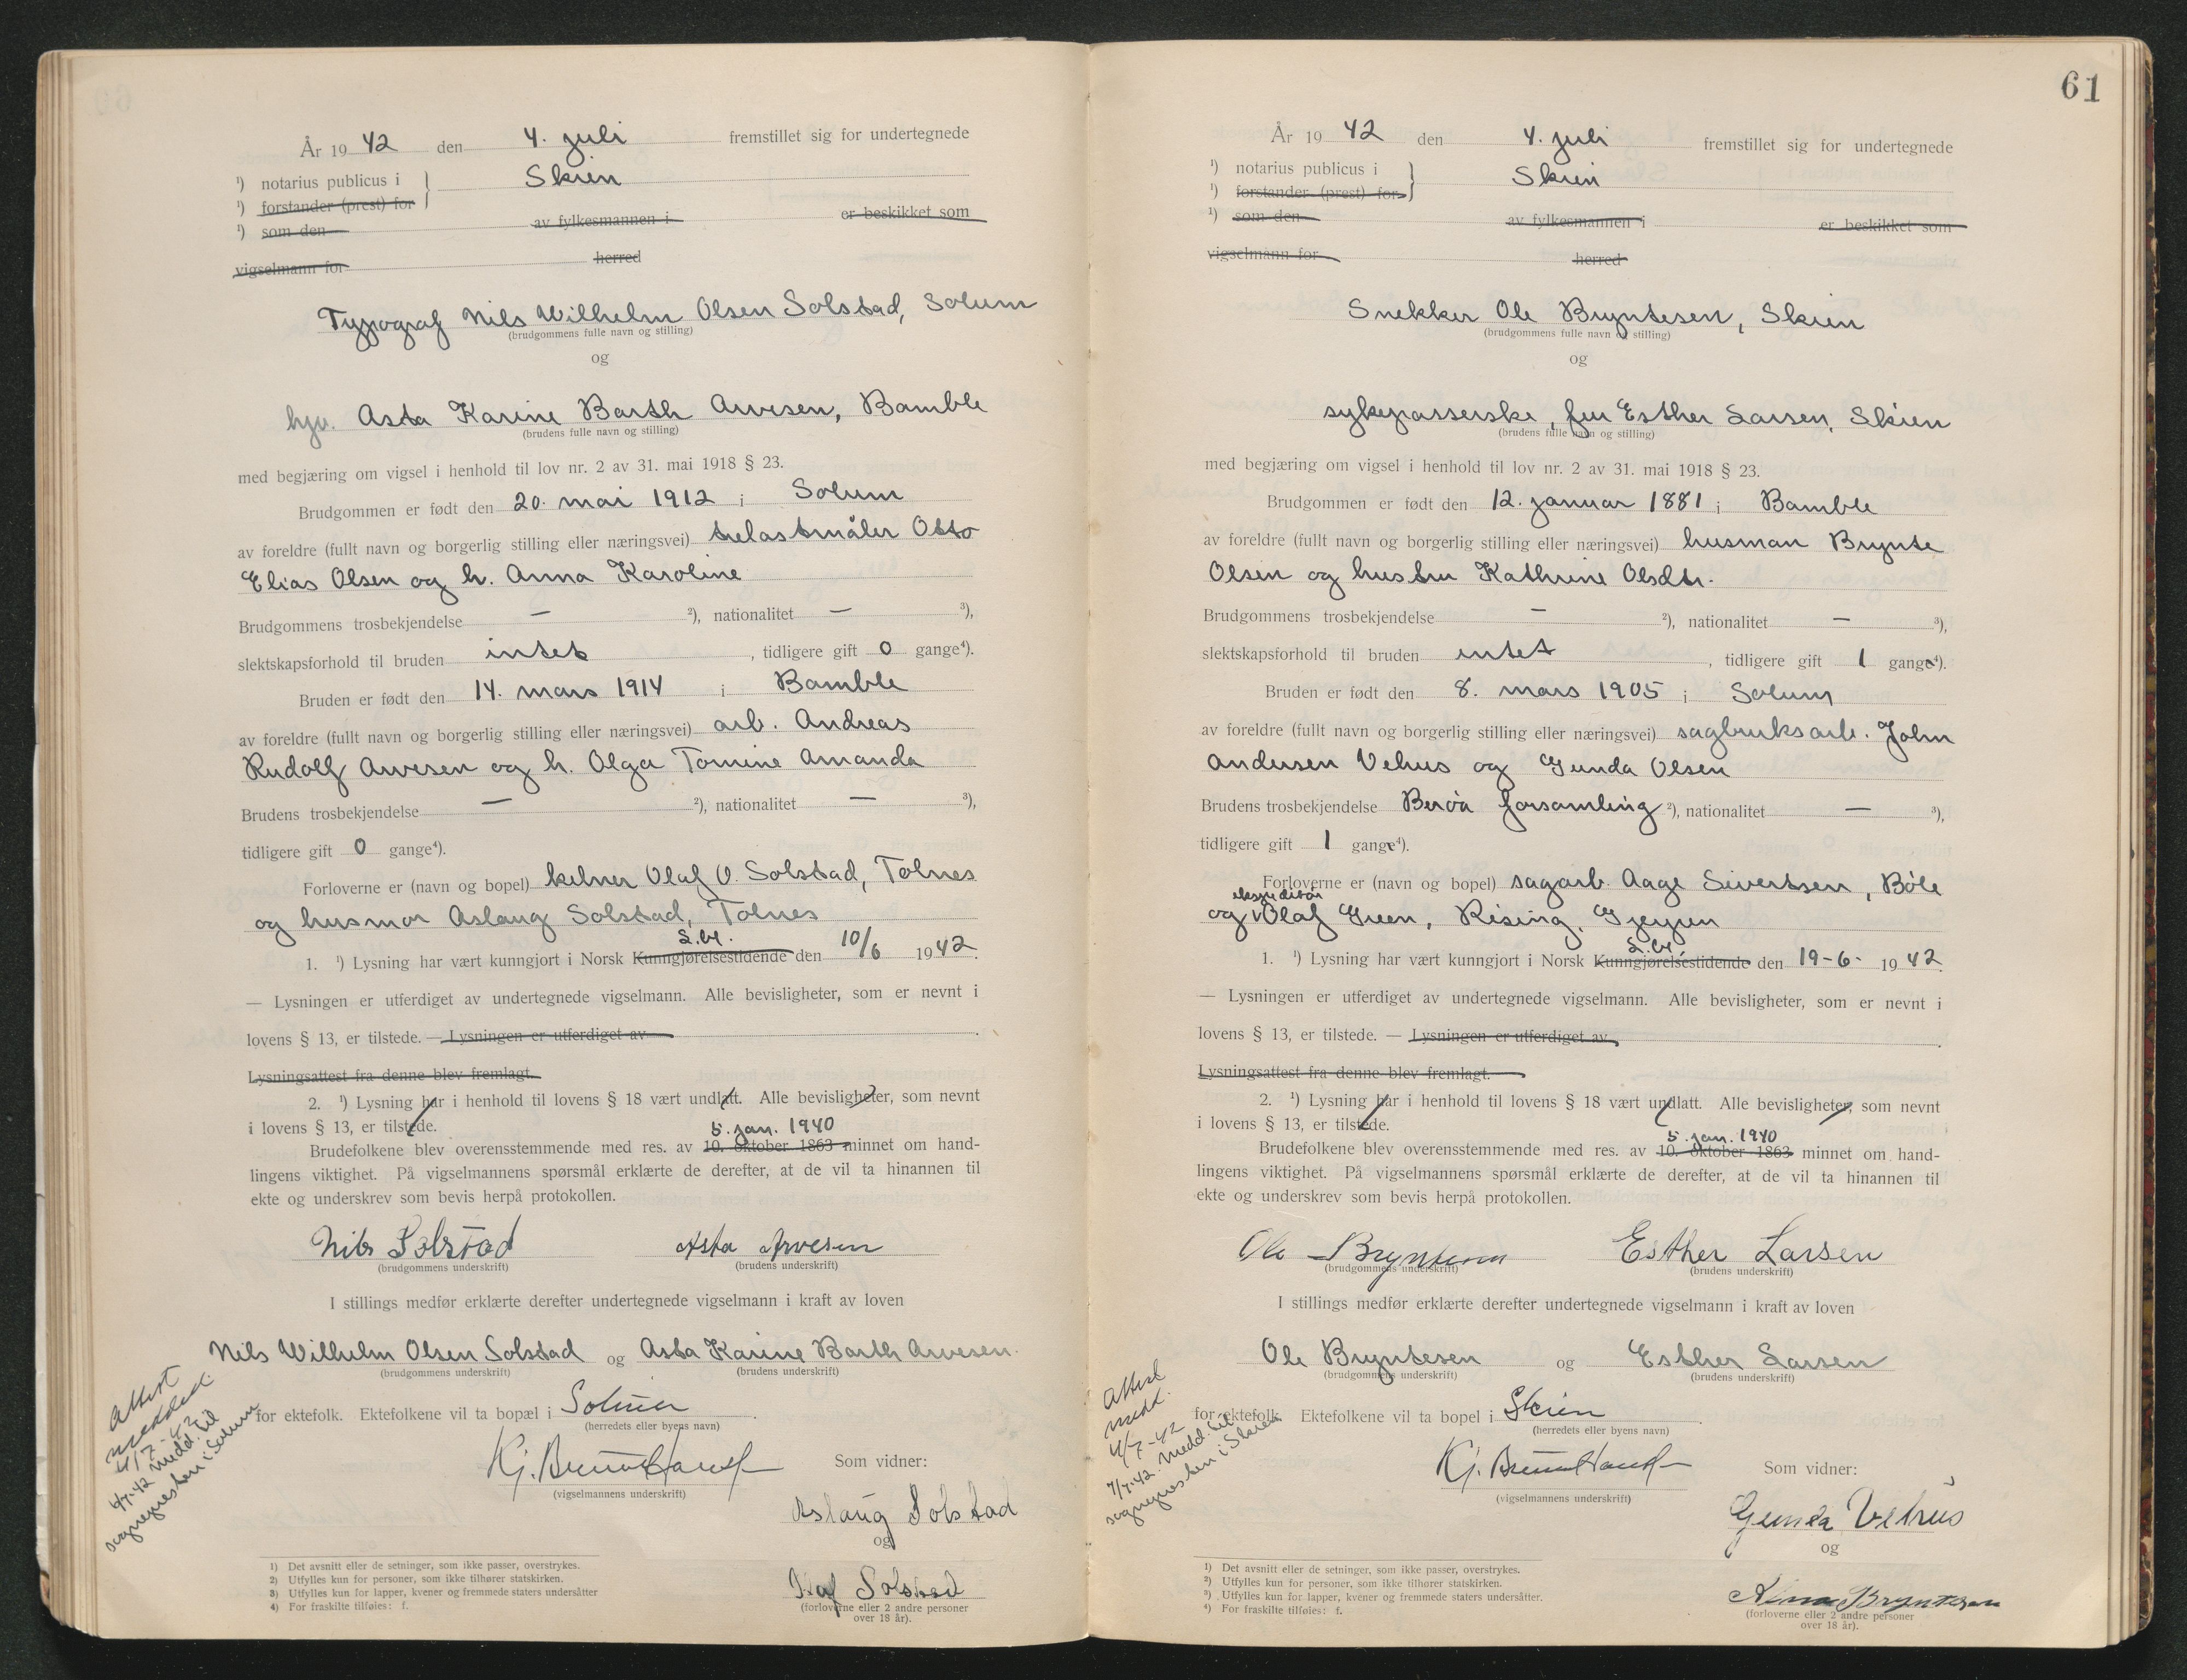 År 19 42 den 4. juli fremstillet sig for undertegnede
¹) notarius publicus i } Skien
¹) forstander (prest) for
¹) som den av fylkesmannen i er beskikket som
vigselmann for herred
Typograf Nils Wilhelm Olsen Solstad, Solum
(brudgommens fulle navn og stilling)
og
hjv. Asta Karine Barth Arvesen, Bamble
(brudens fulle navn og stilling)
med begjæring om vigsel i henhold til lov nr. 2 av 31. mai 1918 § 23.
Brudgommen er født den 20. mai 1912 i Solum
av foreldre (fullt navn og borgerlig stilling eller næringsvei) trelastmåler Otto
Elias Olsen og h. Anna Karoline
Brudgommens trosbekjendelse — ²), nationalitet — ³),
slektskapsforhold til bruden intet, tidligere gift 0 gange⁴).
Bruden er født den 14. mars 1914 i Bamble
av foreldre (fullt navn og borgerlig stilling eller næringsvei) arb. Andreas
Rudolf Arvesen og h. Olga Tomine Amanda
Brudens trosbekjendelse — ²), nationalitet — ³),
tidligere gift 0 gange⁴).
Forloverne er (navn og bopel) kelner Olaf O. Solstad, Tolnes
og husmor Aslaug Solstad, Tolnes
S.bl.
1. ¹) Lysning har vært kunngjort i Norsk Kunngjørelsestidende den 10/6 1942.
— Lysningen er utferdiget av undertegnede vigselmann. Alle bevisligheter, som er nevnt i
lovens § 13, er tilstede. — Lysningen er utferdiget av .
Lysningsattest fra denne blev fremlagt.
2. ¹) Lysning har i henhold til lovens § 18 vært undlatt. Alle bevisligheter, som nevnt
i lovens § 13, er tilstede.
5. jan. 1940
Brudefolkene blev overensstemmende med res. av 10. oktober 1863 minnet om hand-
lingens viktighet. På vigselmannens spørsmål erklærte de derefter, at de vil ta hinannen til
ekte og underskrev som bevis herpå protokollen.
Nils Solstad Asta Arvesen
(brudgommens underskrift) (brudens underskrift)
I stillings medfør erklærte derefter undertegnede vigselmann i kraft av loven
Nils Wilhelm Olsen Solstad og Asta Karine Barth Arvesen.
(brudgommens underskrift) (brudens underskrift)
for ektefolk. Ektefolkene vil ta bopæl i Solum.
(herredets eller byens navn)
Attest
meddel.
4/7-42
4/7-42 medd. til
sognepresten i Solum
Kj. Bruun Hanssen
(vigselmannens underskrift)
Som vidner:
Aslaug Solstad
og
Olaf Solstad
(forloverne eller 2 andre personer
over 18 år).
1) Det avsnitt eller de setninger, som ikke passer, overstrykes.
2) Utfylles kun for personer, som ikke tilhører statskirken.
3) Utfylles kun for lapper, kvener og fremmede staters undersåtter
4) For fraskilte tilføies: f.
61
År 19 42 den 4. juli fremstillet sig for undertegnede
¹) notarius publicus i } Skien
¹) forstander (prest) for
¹) som den av fylkesmannen i er beskikket som
vigselmann for herred
Snekker Ole Bryntesen, Skien
(brudgommens fulle navn og stilling)
og
sykepasserske, fru Esther Larsen, Skien
(brudens fulle navn og stilling)
med begjæring om vigsel i henhold til lov nr. 2 av 31. mai 1918 § 23.
Brudgommen er født den 12. januar 1881 i Bamble
av foreldre (fullt navn og borgerlig stilling eller næringsvei) husman Brynte
Olsen og hustru Kathrine Olsdtr.
Brudgommens trosbekjendelse — ²), nationalitet — ³),
slektskapsforhold til bruden intet, tidligere gift 1 gange⁴).
Bruden er født den 8. mars 1905 i Solum
av foreldre (fullt navn og borgerlig stilling eller næringsvei) sagbruksarb. John
Andersen Vehus og Gunda Olsen
Brudens trosbekjendelse Berøa forsamling ²), nationalitet — ³),
tidligere gift 1 gange⁴).
Forloverne er (navn og bopel) sagarb. Aage Sivertsen, Böle
ekspeditör
og Olaf Green, Rising, Gjerpen
S.bl.
1. ¹) Lysning har vært kunngjort i Norsk Kunngjørelsestidende den 19-6- 1942.
— Lysningen er utferdiget av undertegnede vigselmann. Alle bevisligheter, som er nevnt i
lovens § 13, er tilstede. — Lysningen er utferdiget av .
Lysningsattest fra denne blev fremlagt.
2. ¹) Lysning har i henhold til lovens § 18 vært undlatt. Alle bevisligheter, som nevnt
i lovens § 13, er tilstede.
5. jan. 1940
Brudefolkene blev overensstemmende med res. av 10. oktober 1863 minnet om hand-
lingens viktighet. På vigselmannens spørsmål erklærte de derefter, at de vil ta hinannen til
ekte og underskrev som bevis herpå protokollen.
Ole Bryntesen Esther Larsen
(brudgommens underskrift) (brudens underskrift)
I stillings medfør erklærte derefter undertegnede vigselmann i kraft av loven
Ole Bryntesen og Esther Larsen
(brudgommens underskrift) (brudens underskrift)
for ektefolk. Ektefolkene vil ta bopel i Skien.
(herredets eller byens navn)
Attest
medd.
4/7-42
4/7-42. Medd. til
sognepresten i Skien
Kj. Bruun Hanssen
(vigselmannens underskrift)
Som vidner:
Gunda Vehus
og
Bryntesen
(forloverne eller 2 andre personer
over 18 år).
1) Det avsnitt eller de setninger, som ikke passer, overstrykes.
2) Utfylles kun for personer, som ikke tilhører statskirken.
3) Utfylles kun for lapper, kvener og fremmede staters undersåtter.
4) For fraskilte tilføies: f.